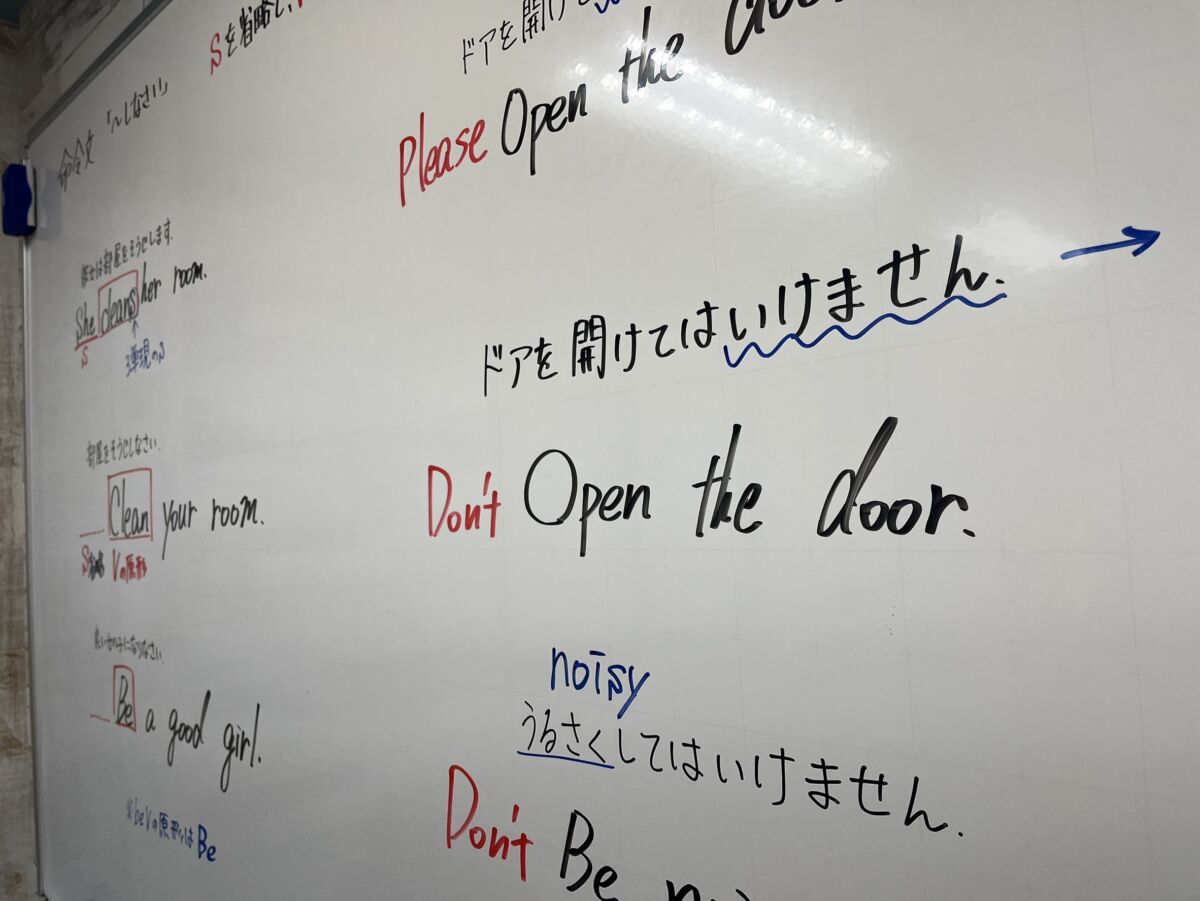 命令文 「～しなさい」
Sを省略し、
彼女は部屋をそうじします.
She cleans her room.
S
3単現のS
部屋をそうじしなさい.
Clean your room.
S省略 Vの原形
良い女の子になりなさい.
Be a good girl.
※beVの原形はBe
ドアを開けて
Please Open the
ドアを開けてはいけません.
Don't Open the door.
noisy
うるさくしてはいけません.
Don't Be